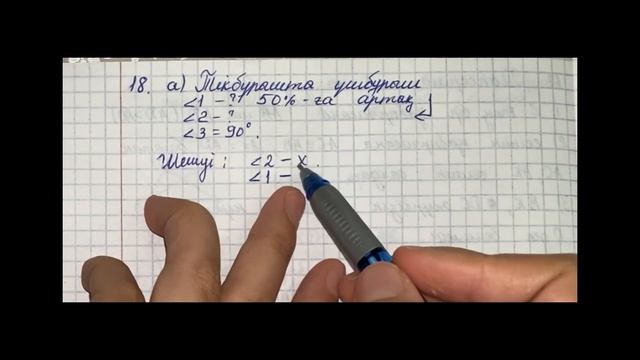 18. а) Тікбурышта үшбұрыш
∠1 - ? 50%-ға артық
∠2 - ?
∠3 = 90°.
Шешуі: ∠2 - x.
∠1 -